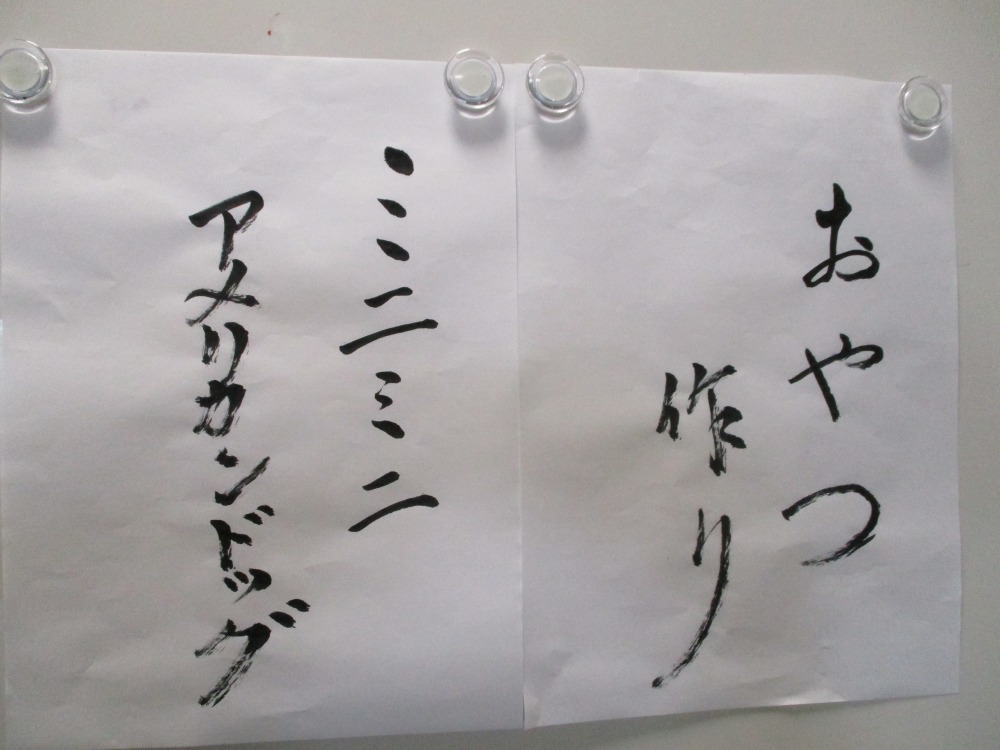 おやつ
作り
ミニミニ
アメリカンドッグ